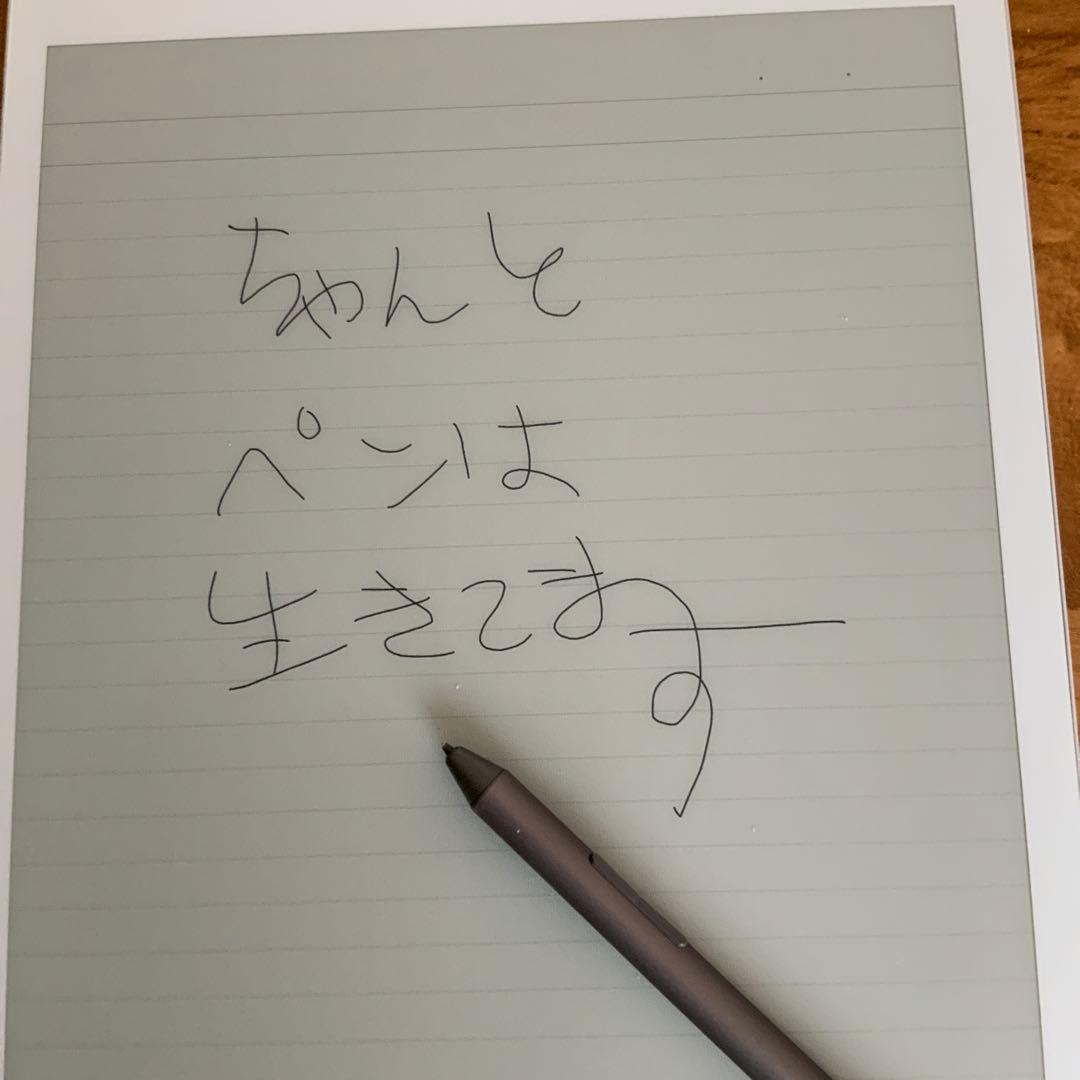 ちゃんと
ペンは
生きてます